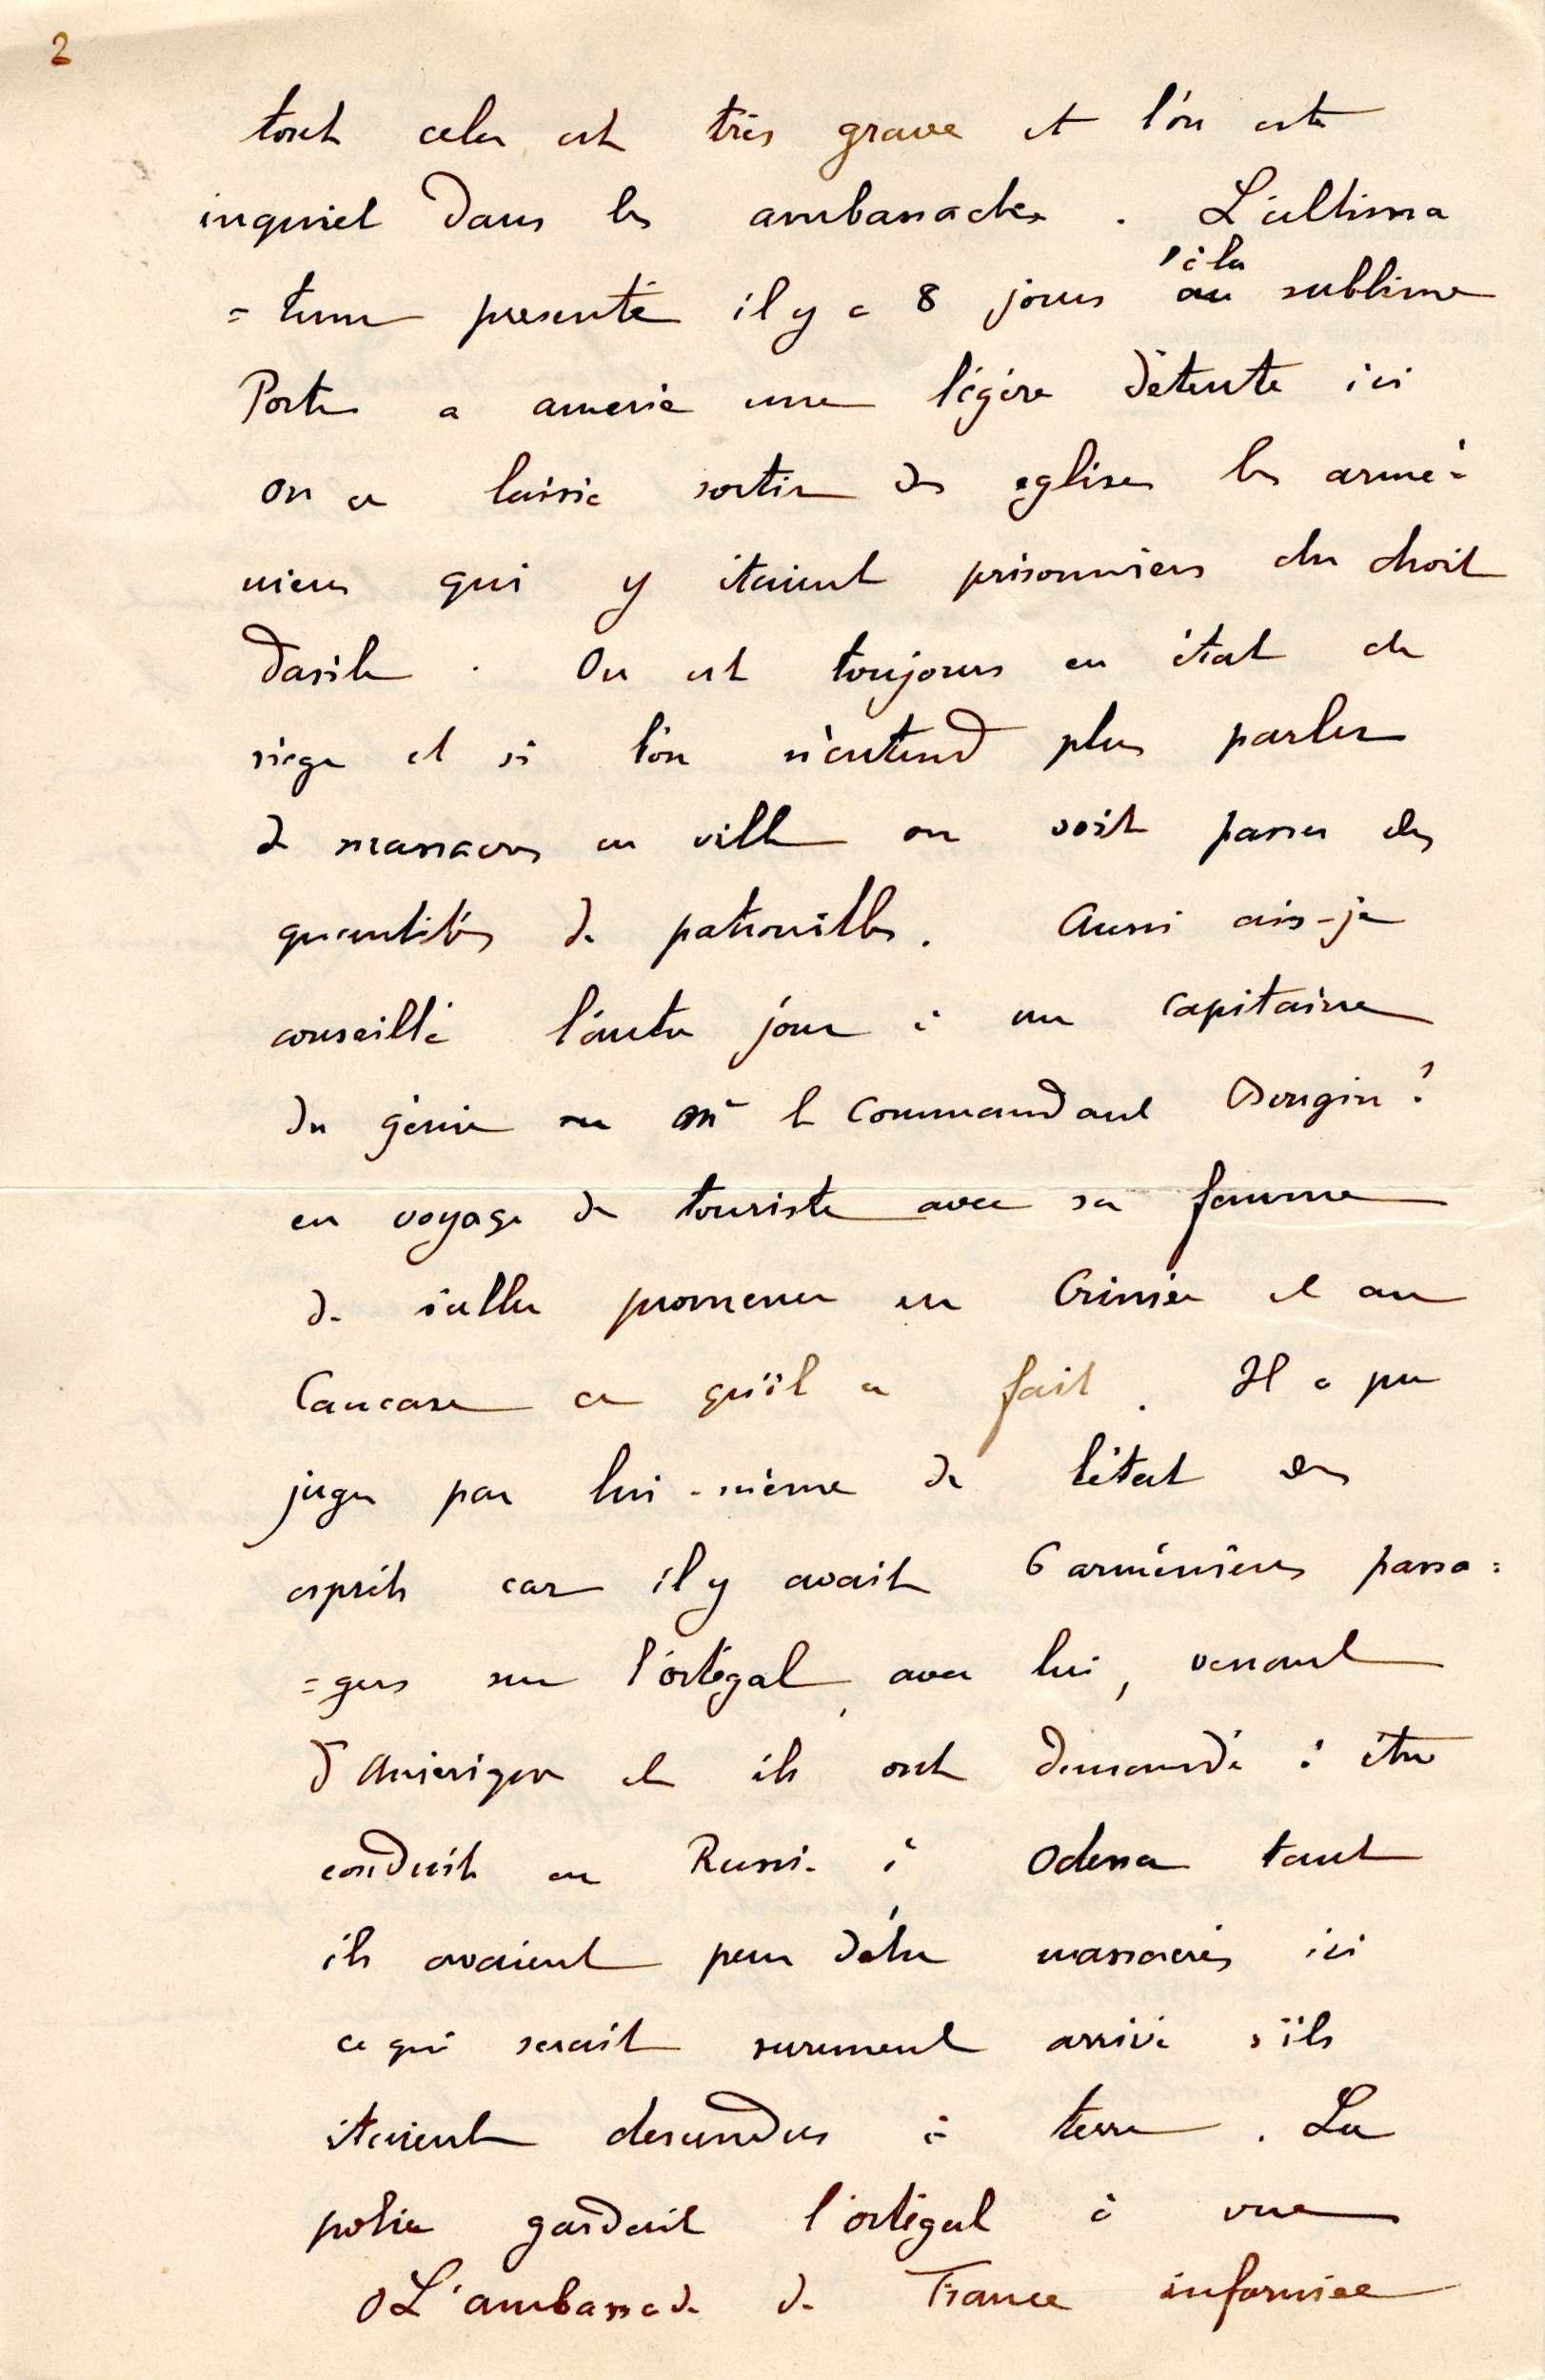 2
tout cela est très grave et l'on est
inquiet dans les ambassades. L'ultima
= tum presenté il y a 8 jours à la au sublime
Porte a amené une légère détente ici
on a laissé sortir des eglises les armé-
niens qui y étaient prisonniers du droit
dasile. On est toujours en état de
siege et si l'on n'entend plus parler
de massacres en ville on voit passer des
quantités de patrouilles. Aussi ais-je
conseillé l'autre jour à un capitaine
du génie Mr le Commandant ?
en voyage de touriste avec sa femme
de s'aller promener en Crimée et au
Caucase ce qu'il a fait. Il a pu
juger par lui-même de l'état des
esprits car il y avait 6 arméniens passa=
=gers sur l'ortégal avec lui, venant
d'Amérique et ils ont demandé à être
conduits en Russie à Odessa tant
ils avaient peur d'être massacrés ici
ce qui serait surement arrivé s'ils
étaient descendus à terre. La
police gardait l'ortégal à vue
L'ambassade de France informée